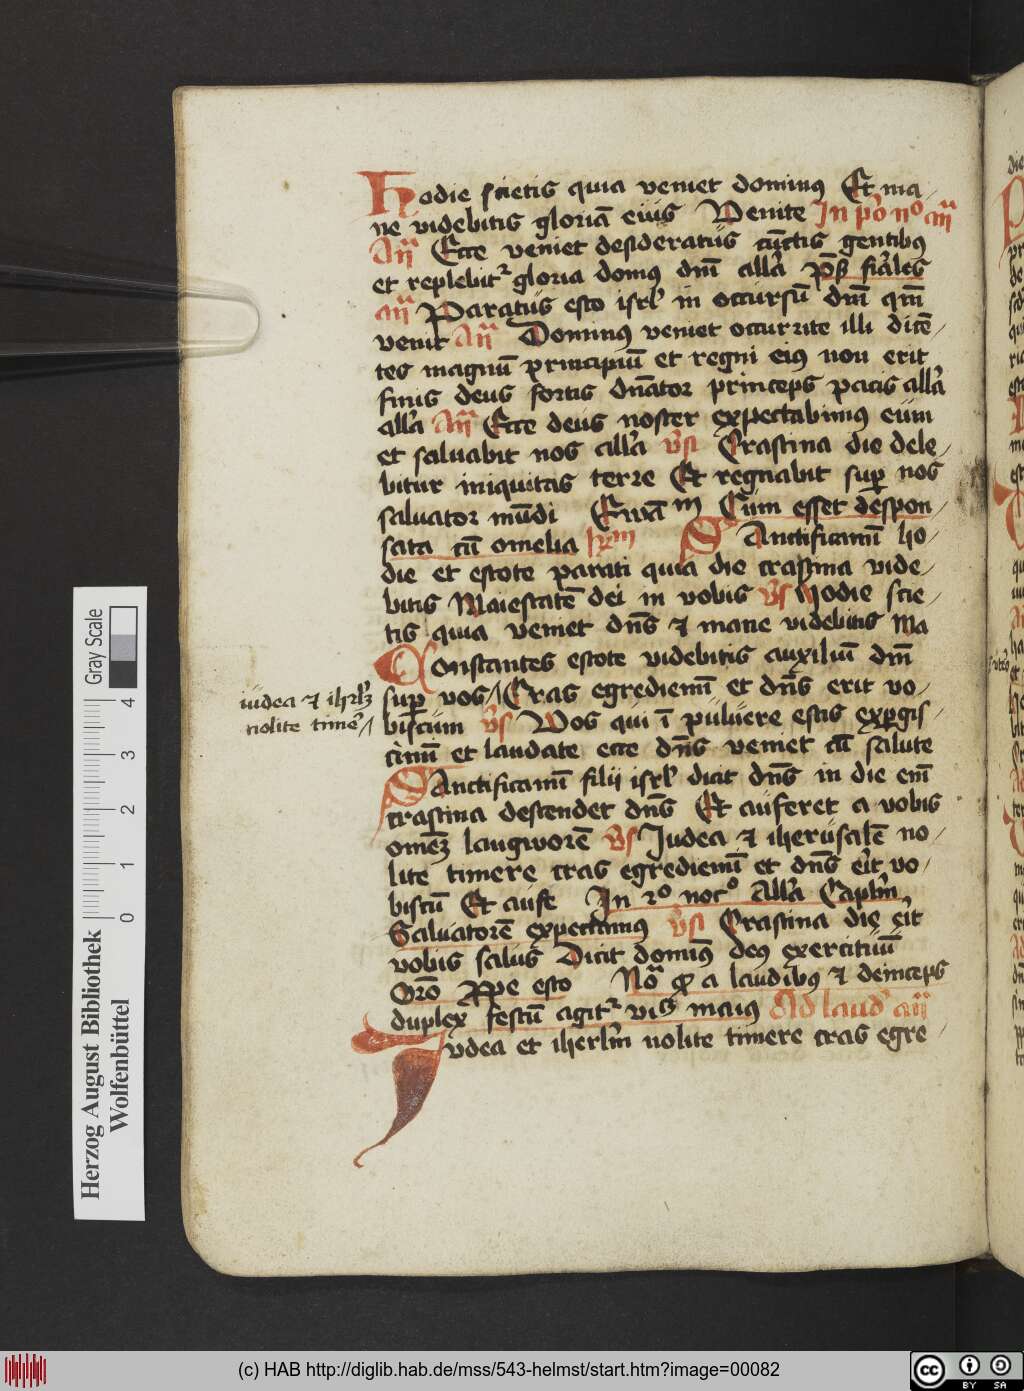 Hodie scietis quia veniet dominus Et ma
ne videbitis gloriā eius Venite In pº nº añ
Añ Ecce veniet desideratus cūctis gentibus
et replebit gloria domus dnī alla ps fiales
añ Paratus esto isrl in occursū dnī qm̄
venit Añ Dominus veniet occurrite illi dicē
tes magnū principiū et regni eius non erit
finis deus fortis dnator princeps pacis alla
alla Añ Ecce deus noster expectabimus eum
et saluabit nos alla vsi Crastina die dele
bitur iniquitas terre Et regnabit sup nos
saluator mūdi Ewā m Cum esset despon
sata cū omelia Sanctificamī ho
die et estote parati quia die crastina vide
bitis Maiestatē dei in vobis vs Hodie scie
tis quia veniet dns et mane videbitis Ma
Constantes estote videbitis auxiliū dnī
iudea et ihrlz
sup vos / Cras egrediemī et dns erit vo
nolite timer /
biscum vs Vos qui ī puluere estis expgis
cimī et laudate ecce dns veniet cū salute
Sanctificamī filii isrl dicit dns in die enī
crastina descendet dns Et auferet a vobis
omēz langworē vs Iudea et iherusalē no
lite timere cras egrediemī et dns erit vo
biscū Et aufe In 2º nocº Alla Caplm
Saluatorē expectamus vsi Crastina die erit
vobis salus Dicit dominus deus exercituū
Orō Ppe esto Nō a laudibus et deinceps
duplex festū agit maius Ad laud añ
Iudea et iherlm nolite timere cras egre
Gray Scale
4
3
2
1
0
Herzog August Bibliothek
Wolfenbüttel
(c) HAB http://diglib.hab.de/mss/543-helmst/start.htm?image=00082
cc BY SA